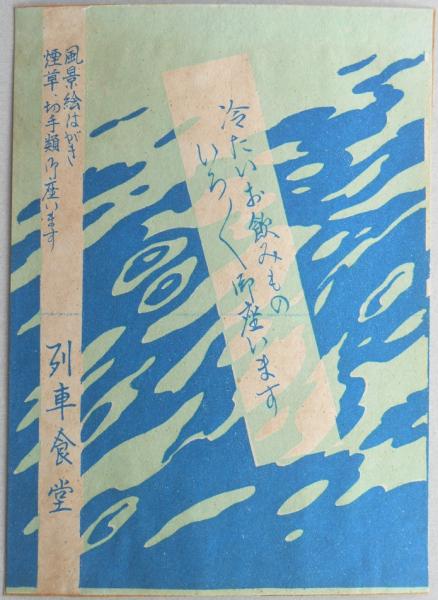 冷たいお飲みもの
いろ〳〵御座います
風景絵はがき
煙草、切手類御座います
列車食堂